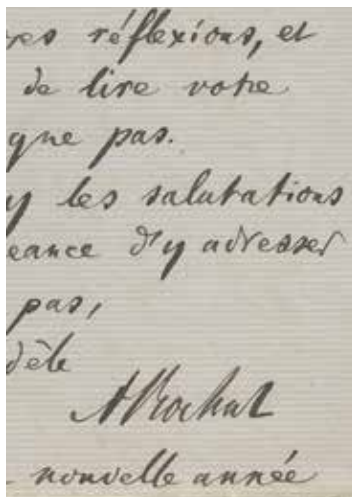 res réflexions, et
de lire votre
que pas.
y les salutations
eance d'y adresser
pas,
dèle
ARochat
nouvelle année